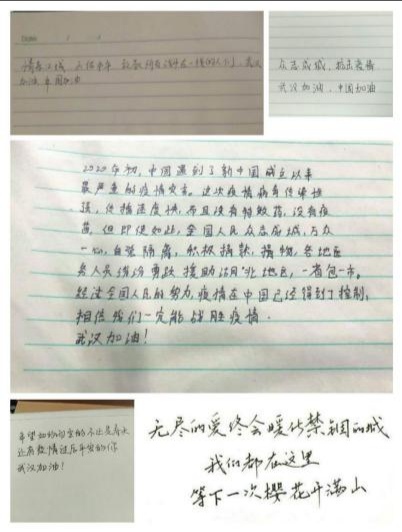 致敬所有
一线的人们，武汉
加油 中国加油
众志成城，抗击疫情
武汉加油，中国加油
2020年初，中国遇到了新中国成立以来
最严重的疫情灾害。这次疫情病毒传染性
强，传播速度快，而且没有特效药，没有疫
苗。但即便如此，全国人民众志成城，万众
一心，自觉隔离，积极捐款，捐物，各地医
务人员踊跃 援助湖北地区，一省包一市，
经过全国人民的努力，疫情在中国已经得到了控制，
相信我们一定能战胜疫情。
武汉加油！
希望如约而至的不止是春天
还有疫情过后平安的你
武汉加油！
无尽的爱终会暖化禁锢的城
我们都在这里
等下一次樱花开满山